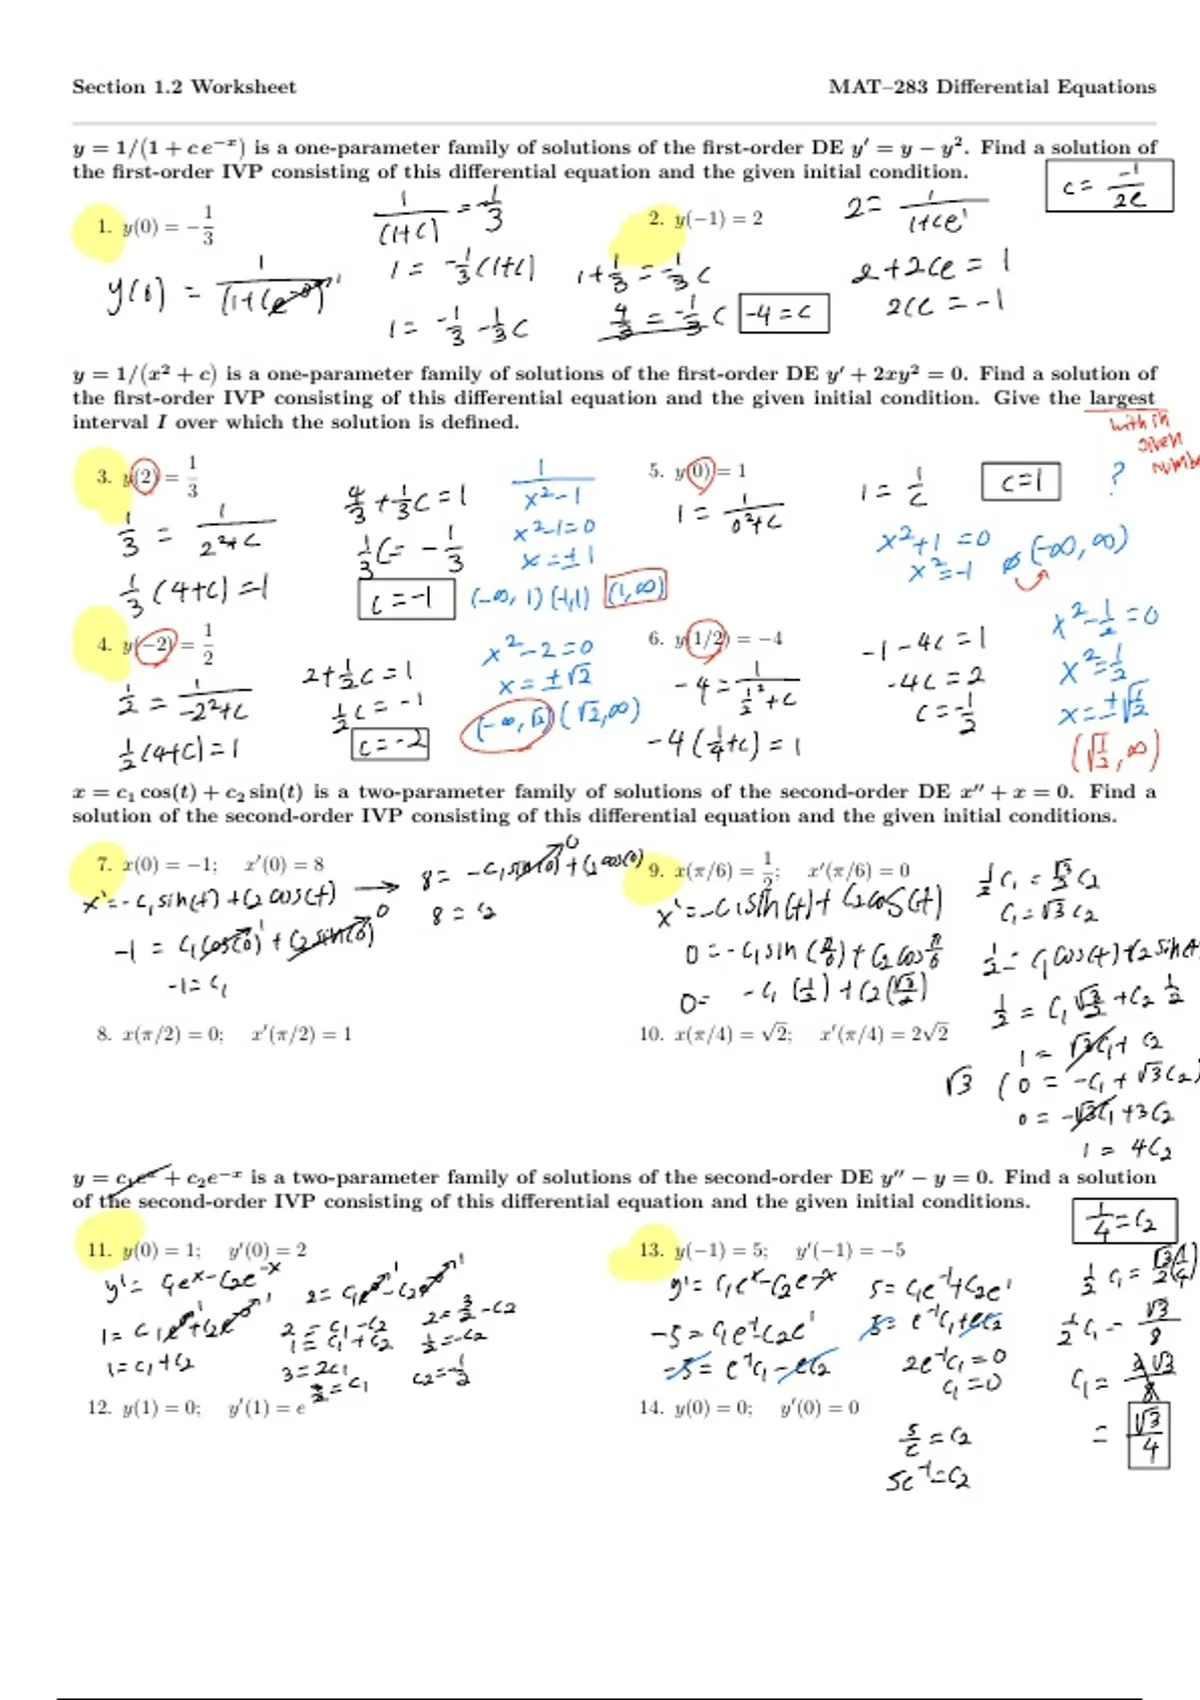 Section 1.2 Worksheet MAT–283 Differential Equations
y = 1/(1 + c e⁻ˣ) is a one-parameter family of solutions of the first-order DE y′ = y − y². Find a solution of
the first-order IVP consisting of this differential equation and the given initial condition.
c = -1/2e
1. y(0) = −1/3
1/(1+c) = -1/3
2. y(−1) = 2
2 = 1/(1+ce¹)
y(0) = 1/(1+ce⁻⁰)¹
1 = -1/3(1+c)
1+1/3 = -1/3 c
2+2ce = 1
1 = -1/3 -1/3 c
4/3 = -1/3 c
-4 = c
2ce = -1
y = 1/(x² + c) is a one-parameter family of solutions of the first-order DE y′ + 2xy² = 0. Find a solution of
the first-order IVP consisting of this differential equation and the given initial condition. Give the largest
interval I over which the solution is defined.
with in
given
number
?
3. y(2) = 1/3
1/3 = 1/(2²+c)
1/3 (4+c) = 1
4/3 + 1/3 c = 1
1/3 c = -1/3
c = -1
1/(x²-1)
x²-1=0
x = ±1
(-∞, 1) (-1,1) (1,∞)
5. y(0) = 1
1 = 1/(0²+c)
1 = 1/c
c=1
x²+1 = 0
x² = -1
∅ (-∞, ∞)
4. y(−2) = 1/2
1/2 = 1/(-2²+c)
1/2 (4+c) = 1
2+1/2 c = 1
1/2 c = -1
c = -2
x²-2=0
x = ±√2
(-∞, √2) (√2,∞)
6. y(1/2) = −4
-4 = 1/(1/2² + c)
-4 (1/4+c) = 1
-1-4c = 1
-4c = 2
c = -1/2
x²-1/2 = 0
x² = 1/2
x = ±√1/2
(√1/2, ∞)
x = c₁ cos(t) + c₂ sin(t) is a two-parameter family of solutions of the second-order DE x″ + x = 0. Find a
solution of the second-order IVP consisting of this differential equation and the given initial conditions.
7. x(0) = −1; x′(0) = 8
x' = -c₁ sin(t) + c₂ cos(t) → 8 = -c₁ sin(0) + c₂ cos(0)
-1 = c₁ cos(0) + c₂ sin(0)
8 = c₂
-1 = c₁
8. x(π/2) = 0; x′(π/2) = 1
9. x(π/6) = 1/2; x′(π/6) = 0
x' = -c₁ sin(t) + c₂ cos(t)
0 = -c₁ sin(π/6) + c₂ cos π/6
0 = -c₁ (1/2) + c₂ (√3/2)
1/2 c₁ = √3/2 c₂
c₁ = √3 c₂
1/2 = c₁ cos(t) + c₂ sin(t)
1/2 = c₁ √3/2 + c₂ 1/2
1 = √3 c₁ + c₂
√3 (0 = -c₁ + √3 c₂)
0 = -√3 c₁ + 3c₂
1 = 4c₂
10. x(π/4) = √2; x′(π/4) = 2√2
y = c₁eˣ + c₂e⁻ˣ is a two-parameter family of solutions of the second-order DE y″ − y = 0. Find a solution
of the second-order IVP consisting of this differential equation and the given initial conditions.
1/4 = c₂
1/2 c₁ = √3/2 (1/4)
1/2 c₁ = √3/8
c₁ = 2√3/8
= √3/4
11. y(0) = 1; y′(0) = 2
y' = c₁eˣ - c₂e⁻ˣ
1 = c₁e⁰ + c₂e⁻⁰
1 = c₁+c₂
2 = c₁e⁰ - c₂e⁻⁰
2 = c₁ - c₂
1 = c₁ + c₂
3 = 2c₁
3/2 = c₁
2 = 3/2 - c₂
1/2 = -c₂
c₂ = -1/2
12. y(1) = 0; y′(1) = e
13. y(−1) = 5; y′(−1) = −5
y' = c₁eˣ - c₂e⁻ˣ
-5 = c₁e⁻¹ - c₂e¹
-5 = e⁻¹c₁ - ec₂
5 = c₁e⁻¹ + c₂e¹
5 = e⁻¹c₁ + ec₂
2e⁻¹c₁ = 0
c₁ = 0
5/e = c₂
5e⁻¹ = c₂
14. y(0) = 0; y′(0) = 0